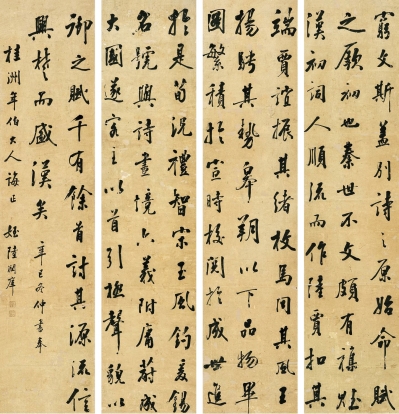 窮文斯蓋別詩之原始命賦
之厥初也秦世不文頗有雜賦
漢初詞人順流而作陸賈扣其
端賈誼振其緒枚馬同其風王
揚騁其勢皋朔以下品物畢
圖繁積於宣時校閱於成世進
於是荀況禮智宋玉風鈞爰錫
名號與詩畫境六義附庸蔚成
大國遂客主以首引極聲貌以
御之賦千有餘首討其源流信
興楚而盛漢矣 辛巳冬仲書奉
桂洲年伯大人誨正 姪陸潤庠